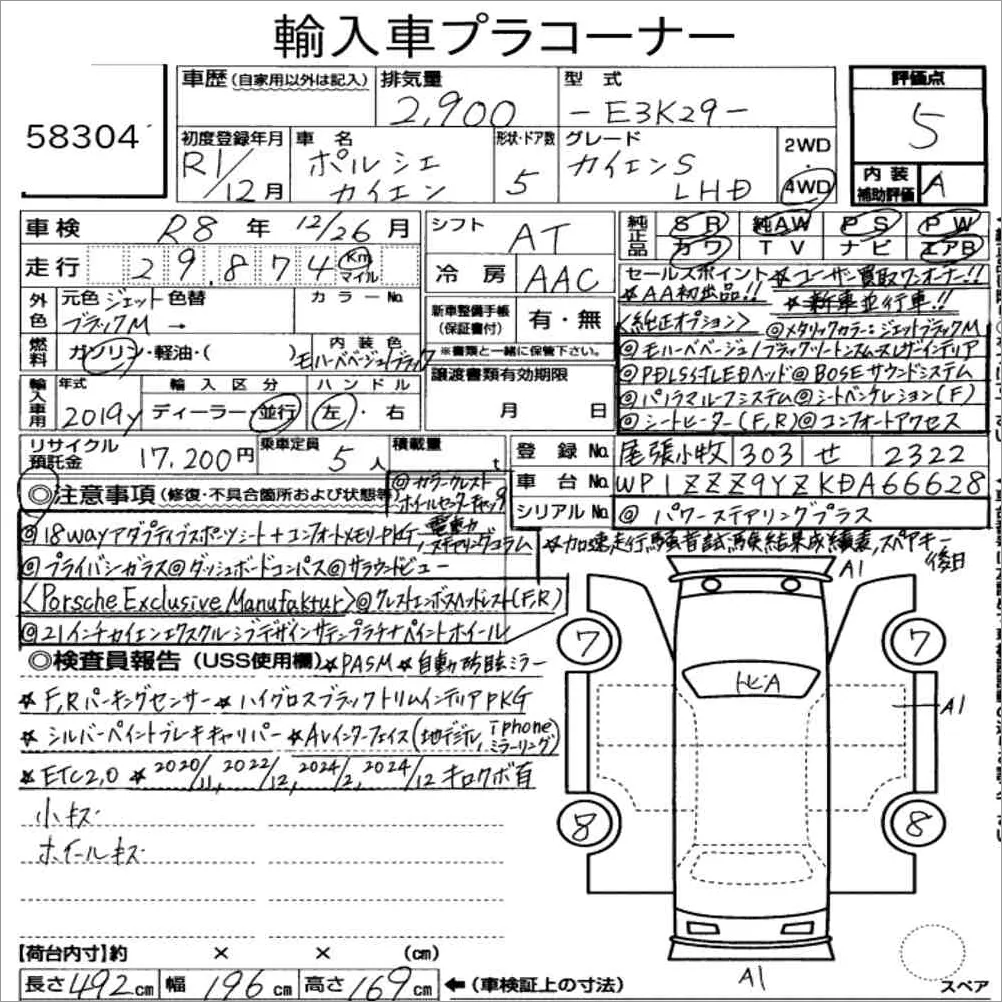 輸入車プラコーナー
58304
車歴(自家用以外は記入) 排気量 2,900 型式 -E3K29- 評価点 5
初度登録年月 R1/12月 車名 ポルシェ カイエン 形状・ドア数 5 グレード カイエンS LHD 2WD ・ 4WD
内装補助評価 A
車検 R8年 12/26月 シフト AT
純正品 SR 純AW PS PW
カワ TV ナビ エアB
走行 29,874 Km マイル 冷房 AAC
セールスポイント ☆ユーザー買取ワンオーナー!!
☆AA初出品!! ☆新車並行車!!
外色 元色 ジェットブラックM 色替 → カラーNo.
新車整備手帳(保証書付) 有・無
※書類と一緒に保管下さい。
<純正オプション> ◎メタリックカラー:ジェットブラックM
燃料 ガソリン・軽油・( ) 内装色 モハーベベージュ/ブラック
◎モハーベベージュ/ブラックツートンスムースレザーインテリア
輸入車用 年式 2019y 輸入区分 ディーラー・並行 ハンドル 左・右
譲渡書類有効期限 月 日
◎PDLS付LEDヘッド◎BOSEサウンドシステム
◎パノラマルーフシステム◎シートベンチレーション(F)
◎シートヒーター(F,R)◎コンフォートアクセス
リサイクル預託金 17,200円 乗車定員 5人 積載量 t
登録No. 尾張小牧 303 せ 2322
車台No. WP1ZZZ9YZKDA66628
シリアルNo. ◎パワーステアリングプラス
◎注意事項(修復・不具合箇所および状態等)
◎カラークレストホイールセンターキャップ
◎18wayアダプティブスポーツシート+コンフォートメモリPKG, 電動ステアリングコラム
☆加速走行騒音試験結果成績表,スペアキー 後日
◎プライバシガラス◎ダッシュボードコンパス◎サラウンドビュー
<Porsche Exclusive Manufaktur>◎クレストエンボスヘッドレスト(F,R)
◎21インチカイエンエクスクルーシブデザインサテンプラチナペイントホイール
◎検査員報告(USS使用欄)☆PASM☆自動防眩ミラー
☆F,Rパーキングセンサー☆ハイグロスブラックトリムインテリアPKG
☆シルバーペイントブレーキキャリパー☆AVインターフェイス(地デジTV, iphoneミラーリング)
☆ETC2,0 ☆2020/11,2022/12,2024/2,2024/12 キロクボ有
小キズ
ホイールキズ
A1
7
7
トビA
A1
8
8
A1
スペア
【荷台内寸】約 × × (cm)
長さ492cm 幅196cm 高さ169cm ←(車検証上の寸法)